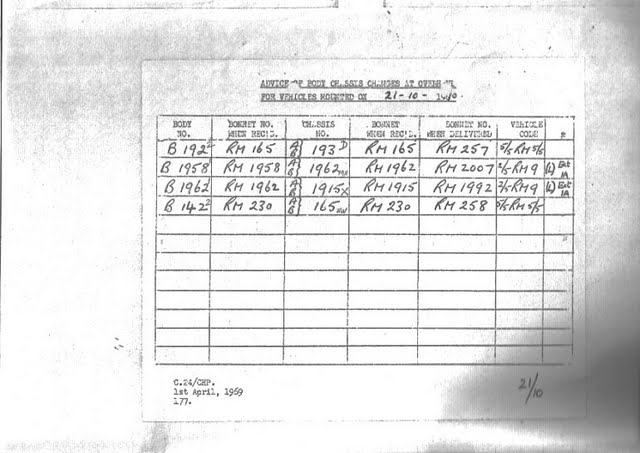 ADVICE OF BODY CHASSIS CHANGES AT OVERHAUL
FOR VEHICLES MOUNTED ON 21-10-1980.
BODY NO. BONNET NO. WHEN REC'D. CHASSIS NO. BONNET WHEN REC'D. BONNET NO. WHEN DELIVERED VEHICLE CODE
B 192² RM 165 A B} 193 D RM 165 RM 257 5/5 RM 5/5
B 1958 RM 1958 A B} 1962 RM 1962 RM 2007 2/5 RM 9 (L) Ext 1A
B 1962 RM 1962 A B} 1915 X RM 1915 RM 1992 2/5 RM 9 (L) Ext 1A
B 142² RM 230 A B} 165 RM 230 RM 258 5/5 RM 5/5
C.24/CHP.
1st April, 1969
177.
21/10